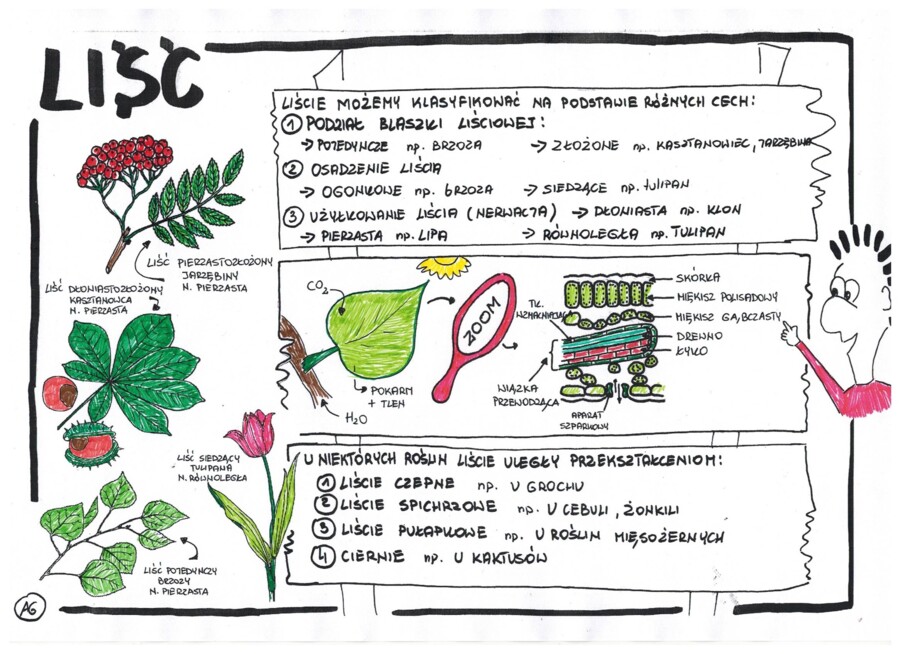 LIŚĆ
LIŚCIE MOŻEMY KLASYFIKOWAĆ NA PODSTAWIE RÓŻNYCH CECH:
1 PODZIAŁ BLASZKI LIŚCIOWEJ:
→ POJEDYNCZE np. BRZOZA → ZŁOŻONE np. KASZTANOWIEC, JARZĘBINA
2 OSADZENIE LIŚCIA
→ OGONKOWE np. brzoza → SIEDZĄCE np. tulipan
3 UŻYŁKOWANIE LIŚCIA (NERWACJA) → DŁONIASTA np. KLON
→ PIERZASTA np. LIPA → RÓWNOLEGŁA np. TULIPAN
LIŚĆ PIERZASTOZŁOŻONY
JARZĘBINY
N. PIERZASTA
LIŚĆ DŁONIASTOZŁOŻONY
KASZTANOWCA
N. PIERZASTA
CO2
POKARM
+ TLEN
H2O
ZOOM
TK.
WZMACNIAJĄCA
WIĄZKA
PRZEWODZĄCA
APARAT
SZPARKOWY
SKÓRKA
MIĘKISZ POLISADOWY
MIĘKISZ GĄBCZASTY
DREWNO
ŁYKO
LIŚĆ SIEDZĄCY
TULIPANA
N. RÓWNOLEGŁA
U NIEKTÓRYCH ROŚLIN LIŚCIE ULEGŁY PRZEKSZTAŁCENIOM:
1 LIŚCIE CZEPNE np. U GROCHU
2 LIŚCIE SPICHRZOWE np. U CEBULI, ŻONKILI
3 LIŚCIE PUŁAPKOWE np. U ROŚLIN MIĘSOŻERNYCH
4 CIERNIE np. U KAKTUSÓW
LIŚĆ POJEDYNCZY
BRZOZY
N. PIERZASTA
AG